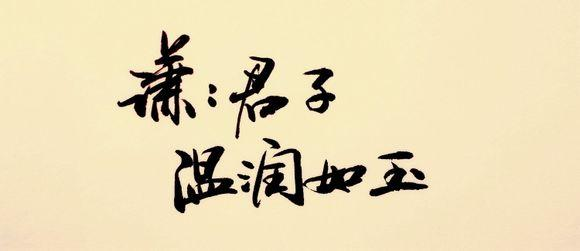 谦:君子
温润如玉